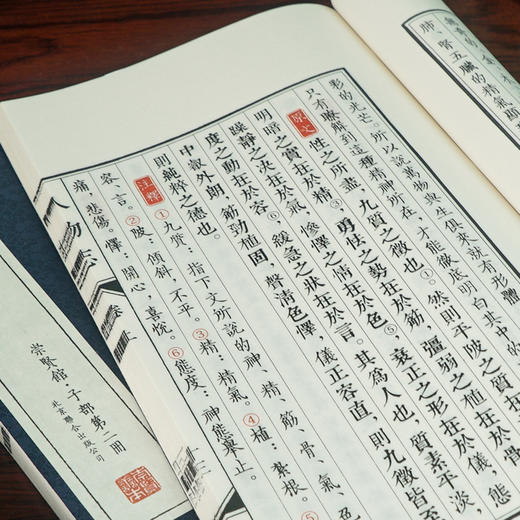 肺、腎五臟的精氣顯
形的光芒。所以說萬物與生俱來就有形體
只有瞭解到這種精神所在，才能徹底明白其中的
原文
性之所盡，九質之徵也①。然則平陂之質在於
明暗之實在於精③，勇怯之勢在於筋，彊弱之植在於骨
躁靜之決在於氣，慘懌之情在於色⑤，衰正之形在於儀，態
度之動在於容，緩急之狀在於言。其為人也，質素平淡，
中叡外朗，筋勁植固，聲清色懌，儀正容直，則九徵皆至
則純粹之德也。
注釋
①九質：指下文所說的神、精、筋、骨、氣、色
容、言。②陂：傾斜，不平。③精：精氣。④植：根。⑤
痛，悲傷。懌：開心，喜悅。⑥態度：神態舉止。
人物志
崇賢館·子部第二冊
北京聯合出版公司